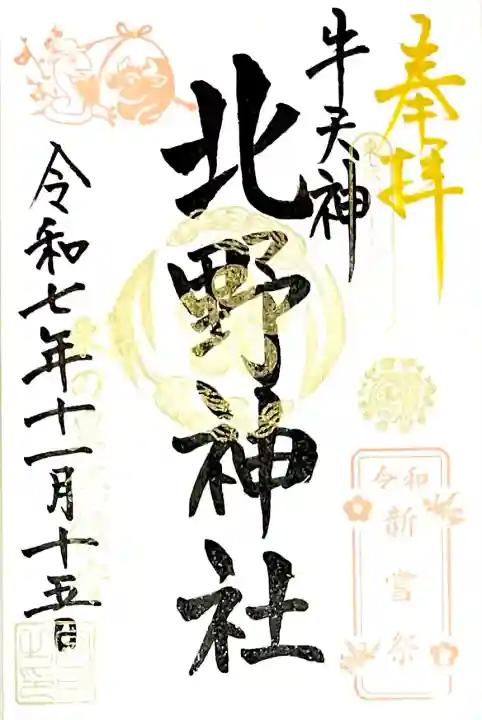 奉拝
牛天神
北野神社
令和七年十一月十五日
令和
新嘗祭